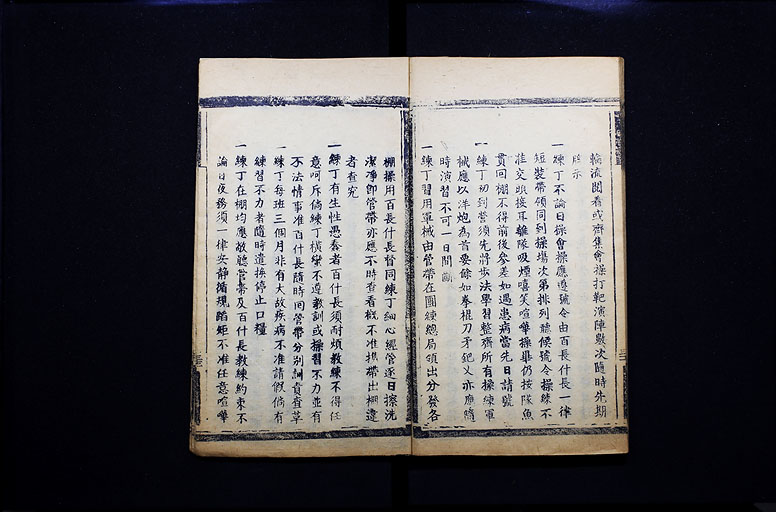 輪流閱看或齊集會操打靶演陣數次隨時先期
牌示
一練丁不論日操會操應遵號令由百長什長一律
短裝帶領同到操塲次第排列聽候號令操練不
准交頭接耳離隊吸煙嘻笑喧嘩操畢仍按隊魚
貫回棚不得前後參差如遇患病當先日請號
一練丁初到營須先將步法學習整齊所有操練軍
械應以洋炮為首要餘如拳棍刀矛鈀乂亦應隨
時演習不可一日間斷
一練丁習用軍械由管帶在團練總局領出分發各
棚操用百長什長督同練丁細心經管逐日擦洗
潔凈卽管帶亦應不時查看槪不准携帶出棚違
者查究
一練丁有生性愚蠢者百什長須耐煩教練不得任
意呵斥倘練丁橫蠻不遵教訓或操習不力並有
不法情事准百什長隨時囘管帶分别訓責查革
一練丁每班三個月非有大故疾病不准請假倘有
練習不力者隨時遣換停止口糧
一練丁在棚均應敬聽管帶及百什長教練約束不
論日夜務須一律安静循規蹈矩不准任意喧嘩